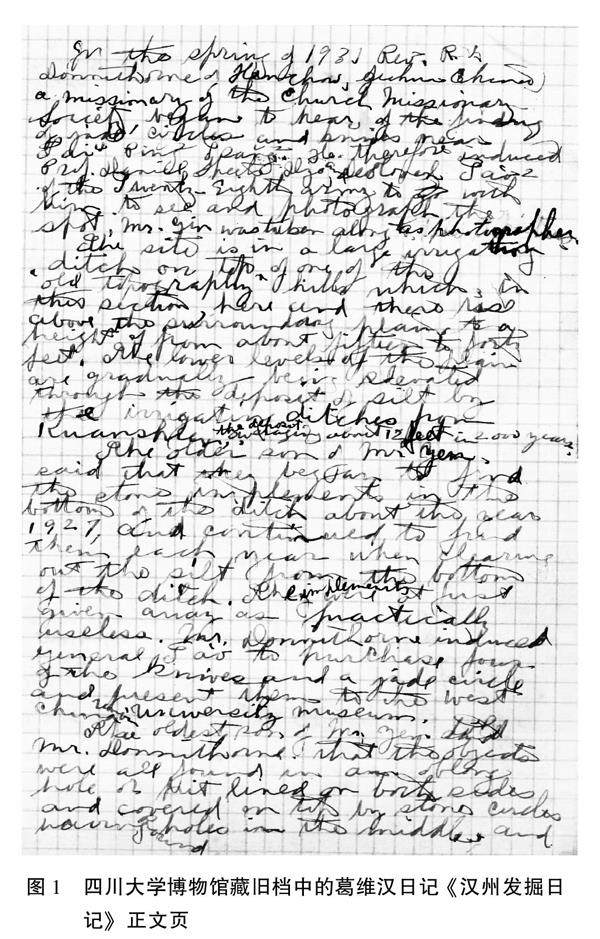 In the spring of 1931 Rev. R. L.
Donnithorne of Hanchow, Szechuan China,
a missionary of the Church Missionary
Society began to hear of the finding
of jade, circles and knives near
He therefore induced
to go with
him to see and photograph the
spot. Mr. Jin was taken along as photographer.
The site is in a large irrigation
ditch on top of one of the
old topography hills which in
this section here and there rise
above the surrounding plains to a
height of from about fifteen to forty
feet. The lower levels of the plain
are gradually being elevated
through the deposit of silt by
the irrigation ditches from
Kuanshien, the deposit averaging about 12 feet in 2000 years.
The older son of Mr. Yen,
said that they began to find
the stone implements in the
bottom of the ditch about the year
1927, and continued to find
them each year when clearing
out the silt from the bottom
of the ditch. The implements were at first
given away as practically
useless. Mr. Donnithorne induced
general Tao to purchase four
of the knives and a jade circle
and present them to the West
China Union University museum.
The oldest son of Mr. Yen told
Mr. Donnithorne that the objects
were all found in an oblong
hole or pit lined on both sides
and covered on top by stone circles
having round holes in the middle, and
图 1 四川大学博物馆藏旧档中的葛维汉日记《汉州发掘日
记》正文页